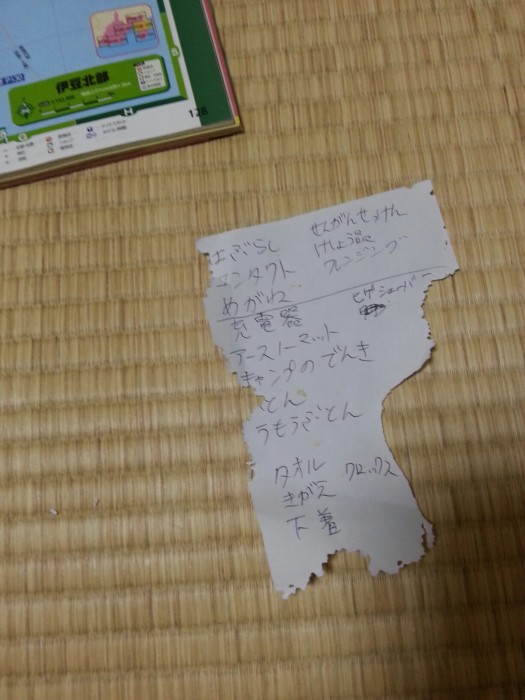 伊豆北部
128
H
はぶらし せんがんせっけん
コンタクト けしょう品
めがね クレンジング
充電器 ヒゲシェーバー
アースノーマット
キャンプのでんき
とん
うもうぶとん
タオル クロックス
きがえ
下着